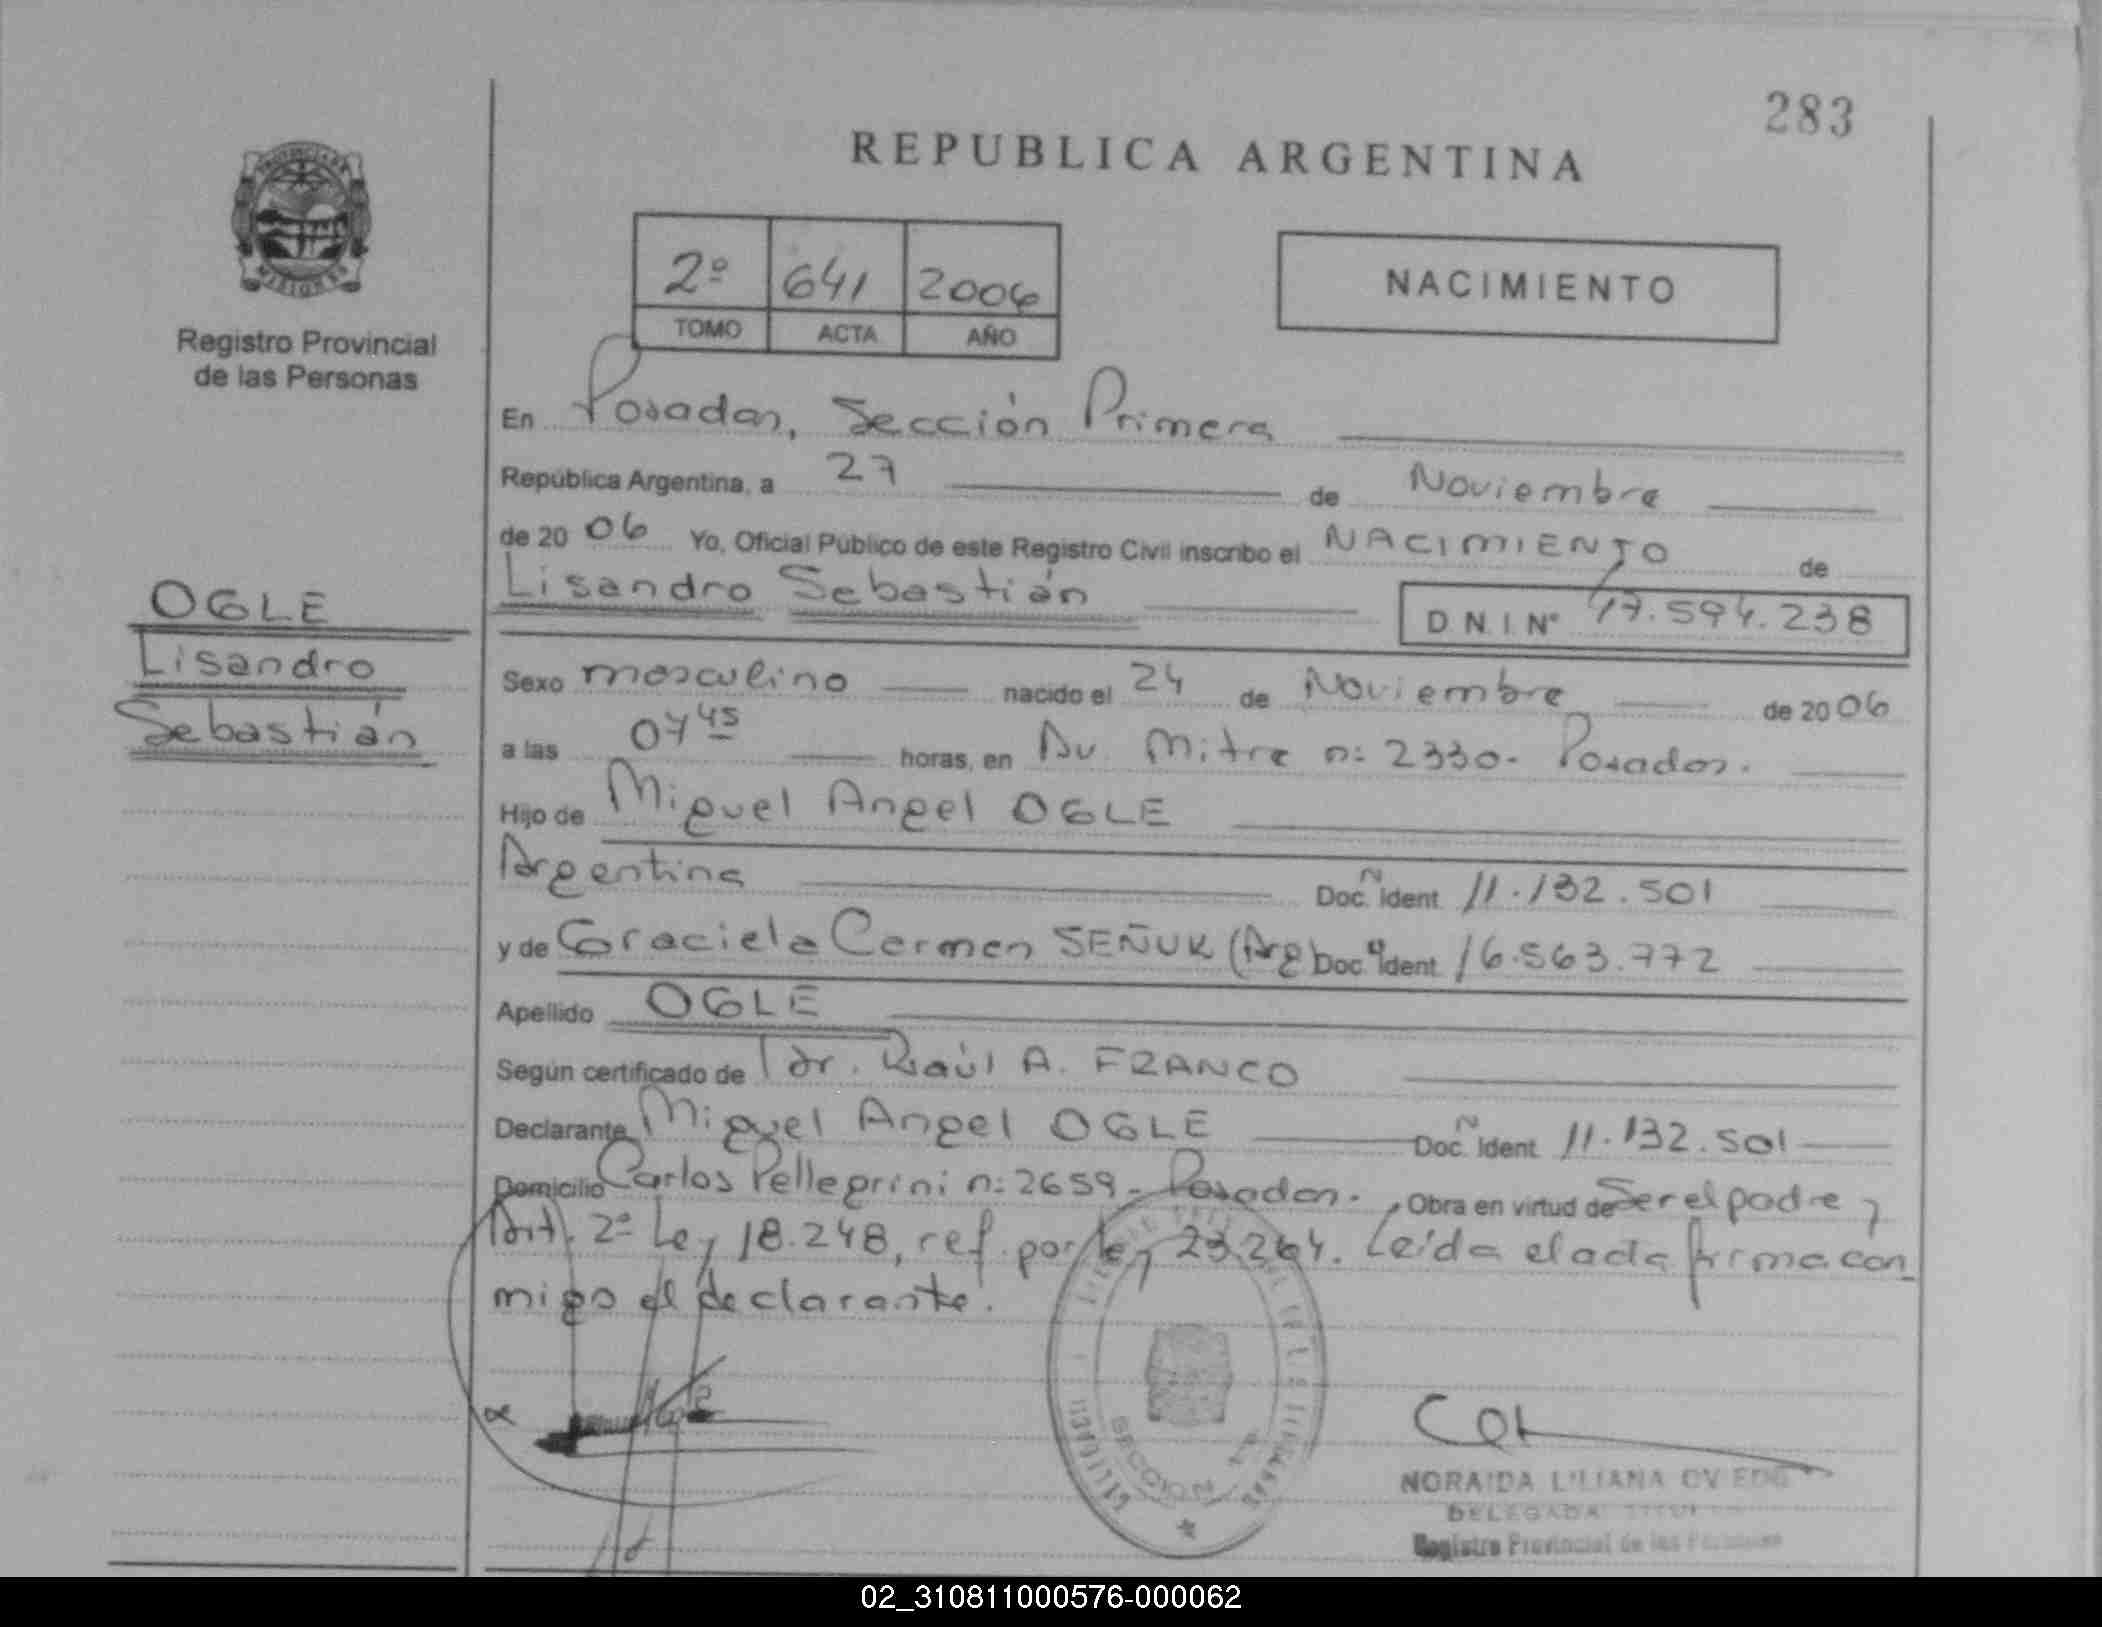 283
REPUBLICA ARGENTINA
PROVINCIA DE
MISIONES
Registro Provincial
de las Personas
2º 641 2006
TOMO ACTA AÑO
NACIMIENTO
En Posadas, Sección Primera
República Argentina, a 27 de Noviembre
de 2006 Yo, Oficial Público de este Registro Civil inscribo el NACIMIENTO de
Lisandro Sebastián
D.N.I. Nº 47.594.238
OGLE
Lisandro
Sebastián
Sexo masculino nacido el 24 de Noviembre de 2006
a las 07 45 horas, en Av. Mitre n: 2330- Posadas.
Hijo de Miguel Angel OGLE
Argentina Doc. N Ident. 11.132.501
y de Graciela Carmen SEÑUK (Arg Doc. Ident. 16.563.772
Apellido OGLE
Según certificado de dr. Raúl A. FRANCO
Declarante Miguel Angel OGLE Doc. N Ident. 11.132.501
Domicilio Carlos Pellegrini n: 2659- Posadas. Obra en virtud de Ser el padre y
Art. 2º Ley 18.248, ref. por ley 23.264. Leída el acta firma con
migo el declarante.
SECCION 1ra
NORAIDA LILIANA OVIEDO
DELEGADA TITULAR
Registro Provincial de las Personas
02_310811000576-000062